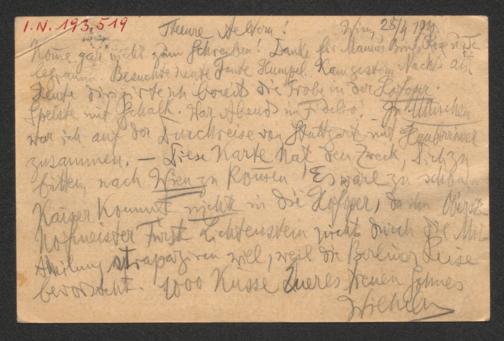 I.N. 193.519
Theure Aeltern! Wien, 25/4
Kome gar nicht zum Schreiben! Dank für Mamas Brief u. Te
legramm. Besuchte heute Tante Hümpel. Kam gestern Nachts an
heute dirigirte ich bereit die Probe in der Hofoper.
Speiste mit Schalk. War Abends in Fidelio. In München
war ich auf der Durchreise von Stuttgart mit
zusammen. – Diese Karte hat den Zweck, Dich zu
bitten nach Wien zu kommen! Es wäre zu schön
Kaiser kommt nicht in die Hofoper, da ihn Oberst
Hofmeister Fürst Lichtenstein nicht durch die
strapaziren will, weil die Berliner Reise
bevorsteht. 1000 Küsse Eueres treuen Sohnes
Wilhelm